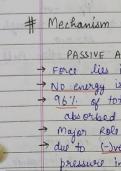 # Mechanism
PASSIVE A
→ Force lies i
→ No energy i
→ 96% of to
absorbed
→ Major Role
→ due to (-)ve
pressure in